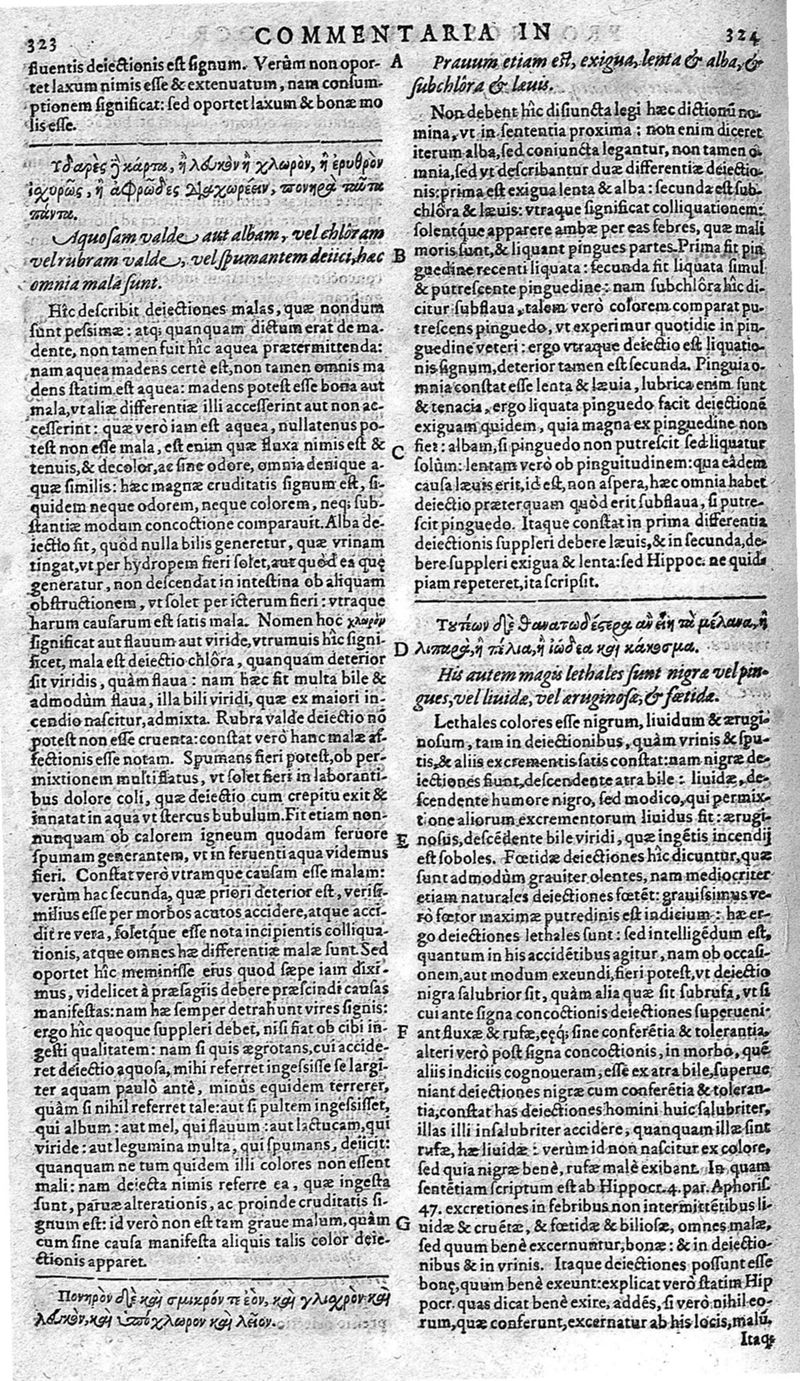 323
COMMENTARIA IN
324
fluentis deiectionis est signum. Verùm non opor-
tet laxum nimis esse & extenuatum, nam consum-
ptionem significat: sed oportet laxum & bonæ mo
lis esse.
Ὑδαρὲς ἢ κάρτα, ἢ λευκὸν ἢ χλωρὸν, ἢ ἐρυθρὸν
ἰσχυρῶς, ἢ ἀφρῶδες διαχωρέειν, πονηρὰ ταῦτα
πάντα.
Aquosam valde aut albam, vel chlôram
vel rubram valde, vel spumantem deiici, hæc
omnia mala sunt.
Hîc describit deiectiones malas, quæ nondum
sunt pessimæ: atq; quanquam dictum erat de ma-
dente, non tamen fuit hîc aquea prætermittenda:
nam aquea madens certè est, non tamen omnis ma
dens statim est aquea: madens potest esse bona aut
mala, vt aliæ differentiæ illi accesserint aut non ac-
cesserint: quæ verò iam est aquea, nullatenus po-
test non esse mala, est enim quæ fluxa nimis est &
tenuis, & decolor, ac sine odore, omnia denique a-
quæ similis: hæc magnæ cruditatis signum est, si-
quidem neque odorem, neque colorem, neq; sub-
stantiæ modum concoctione comparauit. Alba de-
iectio fit, quòd nulla bilis generetur, quæ vrinam
tingat, vt per hydropem fieri solet, aut quòd ea quę
generatur, non descendat in intestina ob aliquam
obstructionem, vt solet per icterum fieri: vtraque
harum causarum est satis mala. Nomen hoc χλωρὸν
significat aut flauum aut viride, vtrumuis hîc signi-
ficet, mala est deiectio chlôra, quanquam deterior
sit viridis, quàm flaua: nam hæc fit multa bile &
admodùm flaua, illa bili viridi, quæ ex maiori in-
cendio nascitur, admixta. Rubra valde deiectio nō
potest non esse cruenta: constat verò hanc malæ af-
fectionis esse notam. Spumans fieri potest, ob per-
mixtionem multi flatus, vt solet fieri in laboranti-
bus dolore coli, quæ deiectio cum crepitu exit &
innatat in aqua vt stercus bubulum. Fit etiam non-
nunquam ob calorem igneum quodam feruore
spumam generantem, vt in feruenti aqua videmus
fieri. Constat verò vtramque causam esse malam:
verùm hac secunda, quæ priori deterior est, verisi-
milius esse per morbos acutos accidere, atque acci-
dit re vera, soletque esse nota incipientis colliqua-
tionis, atque omnes hæ differentiæ malæ sunt. Sed
oportet hîc meminisse eius quod sæpe iam dixi-
mus, videlicet à præsagiis debere præscindi causas
manifestas: nam hæ semper detrahunt vires signis:
ergo hîc quoque suppleri debet, nisi fiat ob cibi in-
gesti qualitatem: nam si quis ægrotans, cui accide-
ret deiectio aquosa, mihi referret ingessisse se largi-
ter aquam paulò antè, minùs equidem terrerer,
quàm si nihil referret tale: aut si pultem ingessisset,
qui album: aut mel, qui flauum: aut lactucam, qui
viride: aut legumina multa, qui spumans, deiicit:
quanquam ne tum quidem illi colores non essent
mali: nam deiecta nimis referre ea, quæ ingesta
sunt, paruæ alterationis, ac proinde cruditatis si-
gnum est: id verò non est tam graue malum, quàm
cum sine causa manifesta aliquis talis color deie-
ctionis apparet.
Πονηρὸν δὲ καὶ σμικρόν τε ἐὸν, καὶ γλισχρὸν καὶ
λευκὸν, καὶ ὑπόχλωρον καὶ λεῖον.
A
Prauum etiam est, exigua, lenta & alba, &
subchlôra & læuis.
Non debent hîc disiuncta legi hæc dictionū no-
mina, vt in sententia proxima: non enim diceret
iterum alba, sed coniuncta legantur, non tamen o-
mnia, sed vt describantur duæ differentiæ deiectio-
nis: prima est exigua lenta & alba: secunda est sub-
chlôra & læuis: vtraque significat colliquationem:
solentque apparere ambæ per eas febres, quæ mali
B
moris sunt, & liquant pingues partes. Prima fit pin
guedine recenti liquata: secunda fit liquata simul
& putrescente pinguedine: nam subchlôra hîc di-
citur subflaua, talem verò colorem comparat pu-
trescens pinguedo, vt experimur quotidie in pin-
guedine veteri: ergo vtraque deiectio est liquatio-
nis signum, deterior tamen est secunda. Pinguia o-
mnia constat esse lenta & læuia, lubrica enim sunt
& tenacia, ergo liquata pinguedo facit deiectionē
exiguam quidem, quia magna ex pinguedine non
C
fiet: albam, si pinguedo non putrescit sed liquatur
solùm: lentam verò ob pinguitudinem: qua eâdem
causa læuis erit, id est, non aspera, hæc omnia habet
deiectio præterquam quòd erit subflaua, si putre-
scit pinguedo. Itaque constat in prima differentia
deiectionis suppleri debere læuis, & in secunda, de-
bere suppleri exigua & lenta: sed Hippoc. ne quid-
piam repeteret, ita scripsit.
Τουτέων δὲ θανατωδέστερα ἂν εἴη τὰ μέλανα, ἢ
D
λιπαρὰ, ἢ πέλια, ἢ ἰώδεα καὶ κάκοσμα.
His autem magis lethales sunt nigra vel pin-
gues, vel liuidæ, vel æruginosæ, & fœtidæ.
Lethales colores esse nigrum, liuidum & ærugi-
nosum, tam in deiectionibus, quàm vrinis & spu-
tis, & aliis excrementis satis constat: nam nigræ de-
iectiones fiunt, descendente atra bile: liuidæ, de-
scendente humore nigro, sed modico, qui permix-
tione aliorum excrementorum liuidus fit: ærugi-
E
nosus, descēdente bile viridi, quæ ingētis incendij
est soboles. Fœtidæ deiectiones hîc dicuntur, quæ
sunt admodùm grauiter olentes, nam mediocriter
etiam naturales deiectiones fœtēt: grauissimus ve-
rò fœtor maximæ putredinis est indicium: hæ er-
go deiectiones lethales sunt: sed intelligēdum est,
quantum in his accidētibus agitur, nam ob occasi-
onem, aut modum exeundi, fieri potest, vt deiectio
nigra salubrior sit, quàm alia quæ sit subrufa, vt si
cui ante signa concoctionis deiectiones superueni-
F
ant fluxæ & rufæ, eęq; sine conferētia & tolerantia,
alteri verò post signa concoctionis, in morbo, quē
aliis indiciis cognoueram, esse ex atra bile, superue
niant deiectiones nigræ cum conferētia & toleran-
tia, constat has deiectiones homini huic salubriter,
illas illi insalubriter accidere, quanquam illæ sint
rufæ, hæ liuidæ: verùm id non nascitur ex colore,
sed quia nigræ benè, rufæ malè exibant. In quam
sentētiam scriptum est ab Hippocr. 4. par. Aphoris.
47. excretiones in febribus non intermittētibus li-
G
uidæ & cruētæ, & fœtidæ & biliosæ, omnes malæ,
sed quum benè excernuntur, bonæ: & in deiectio-
nibus & in vrinis. Itaque deiectiones possunt esse
bonę, quum benè exeunt: explicat verò statim Hip
pocr. quas dicat benè exire, addēs, si verò nihil eo-
rum, quæ conferunt, excernatur ab his locis, malū.
Itaq;